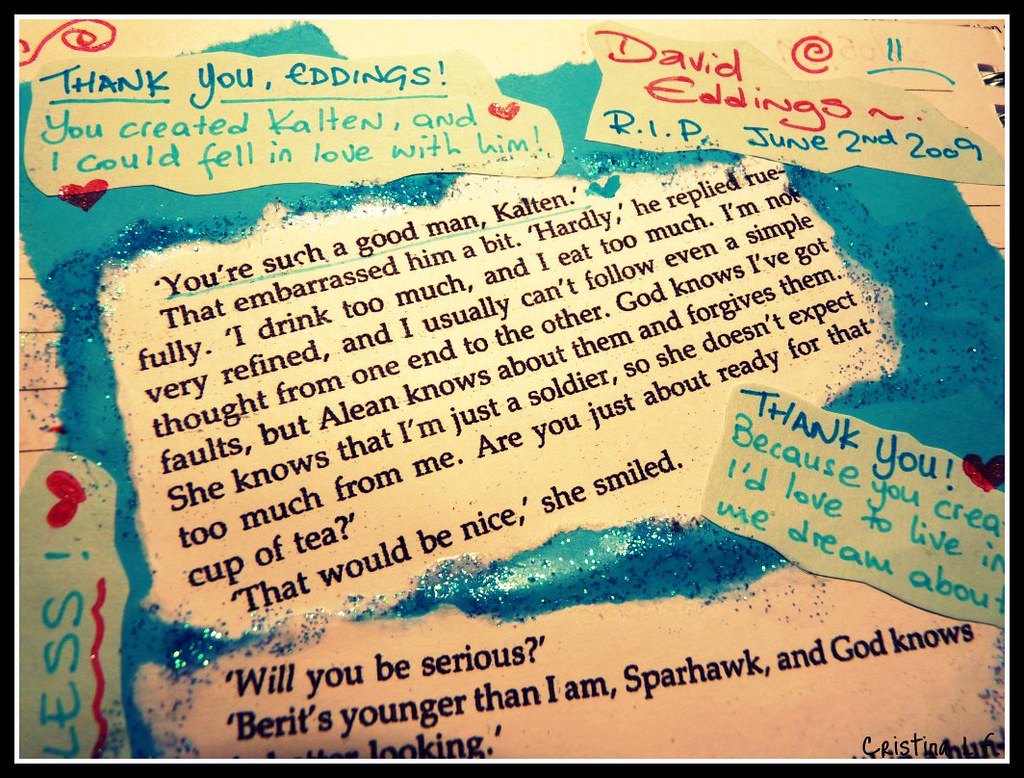 THANK YOU, EDDINGS!
You created Kalten, and
I could fell in love with him!
David
Eddings ~.
R.I.P. June 2nd 2009
'You're such a good man, Kalten.'
That embarrassed him a bit. 'Hardly,' he replied rue-
fully. 'I drink too much, and I eat too much. I'm not
very refined, and I usually can't follow even a simple
thought from one end to the other. God knows I've got
faults, but Alean knows about them and forgives them.
She knows that I'm just a soldier, so she doesn't expect
too much from me. Are you just about ready for that
cup of tea?'
'That would be nice,' she smiled.
THANK YOU!
Because you crea
I'd love to live in
me dream about
LESS!
'Will you be serious?'
'Berit's younger than I am, Sparhawk, and God knows
looking.'
Cristina